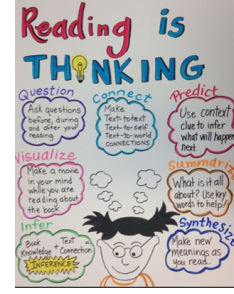 Reading is
THINKING
Question
Ask questions
before, during
and after your
reading
Connect
Make
Text-to-text
Text-to-self
Text-to-world
CONNECTIONS
Predict
Use context
clue to infer
what will happen
next
Visualize
Make a movie
in your mind
while you are
reading about
the book
Summarize
What is it all
about? Use key
words to help!
Infer
Book Text
Knowledge + Connection
INFERENCE
Synthesize
Make new
meanings as
you read